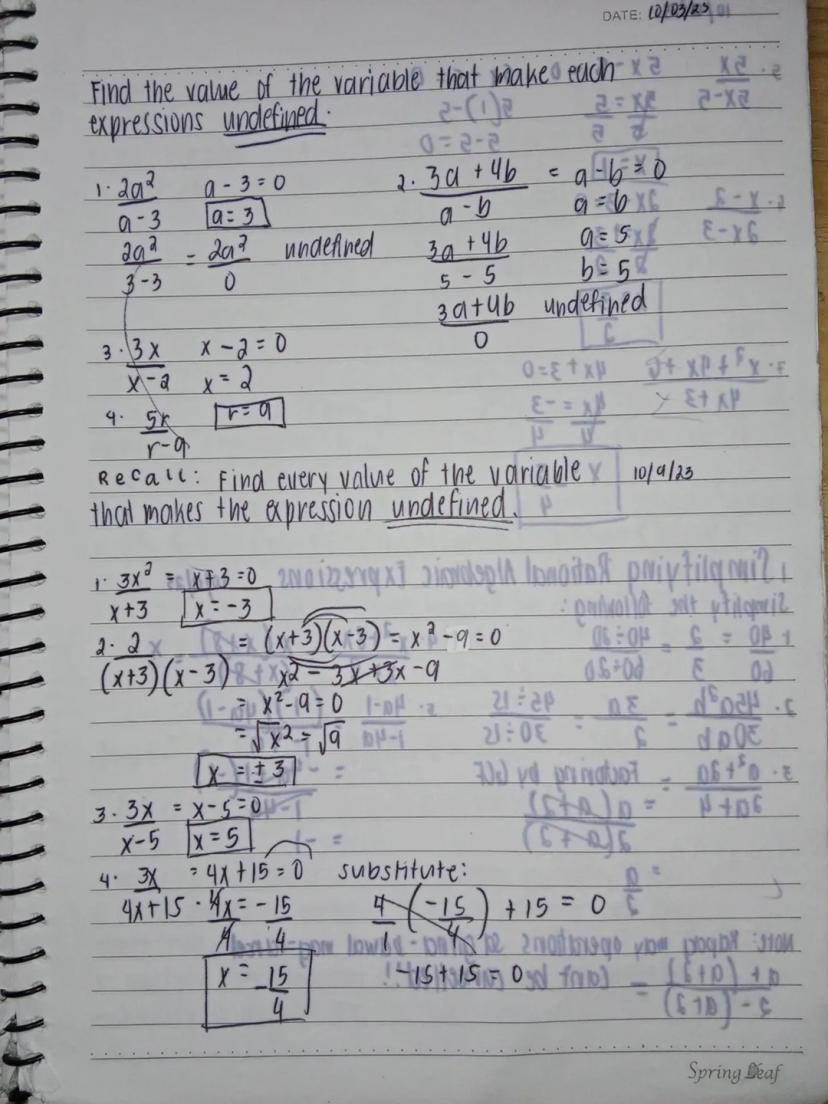 DATE: 10/03/23
Find the value of the variable that make each
expressions undefined.
1. 2a²/a-3   a - 3 = 0
a = 3
2a²/3-3 = 2a²/0 undefined
2. 3a + 4b/a - b = a - b = 0
a = b
3a + 4b/5 - 5   a = 5
b = 5
3a + 4b/0 undefined
3. 3x/x - 2   x - 2 = 0
x = 2
4. 5r/r - 9   r = 9
Recall: Find every value of the variable 10/9/23
that makes the expression undefined.
1. 3x²/x+3 = x+3 = 0
x = -3
2. 2/(x+3)(x-3) = (x+3)(x-3) = x² - 9 = 0
x² - 3x + 3x - 9
= x² - 9 = 0
= √x² = √9
x = ± 3
3. 3x/x-5 = x - 5 = 0
x = 5
4. 3x/4x+15 = 4x + 15 = 0 substitute:
4x/4 = -15/4   4/1 (-15/4) + 15 = 0
x = -15/4   -15 + 15 = 0
Spring Leaf